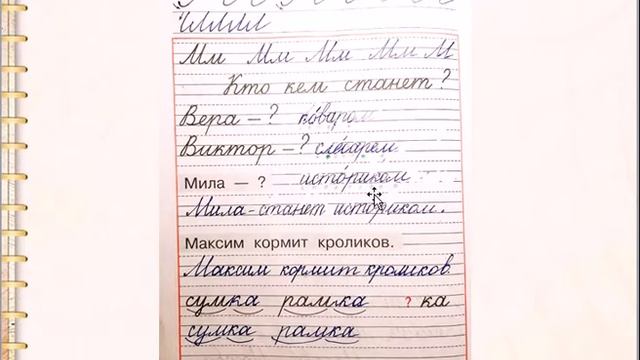 Мм Мм Мм Мм М
Кто кем станет?
Вера — ? по́варом
Виктор — ? сле́сарем
Мила — ? исто́риком
Мила-станет историком.
Максим кормит кроликов.
Максим кормит кроликов
сумка рамка ? ка
сумка рамка